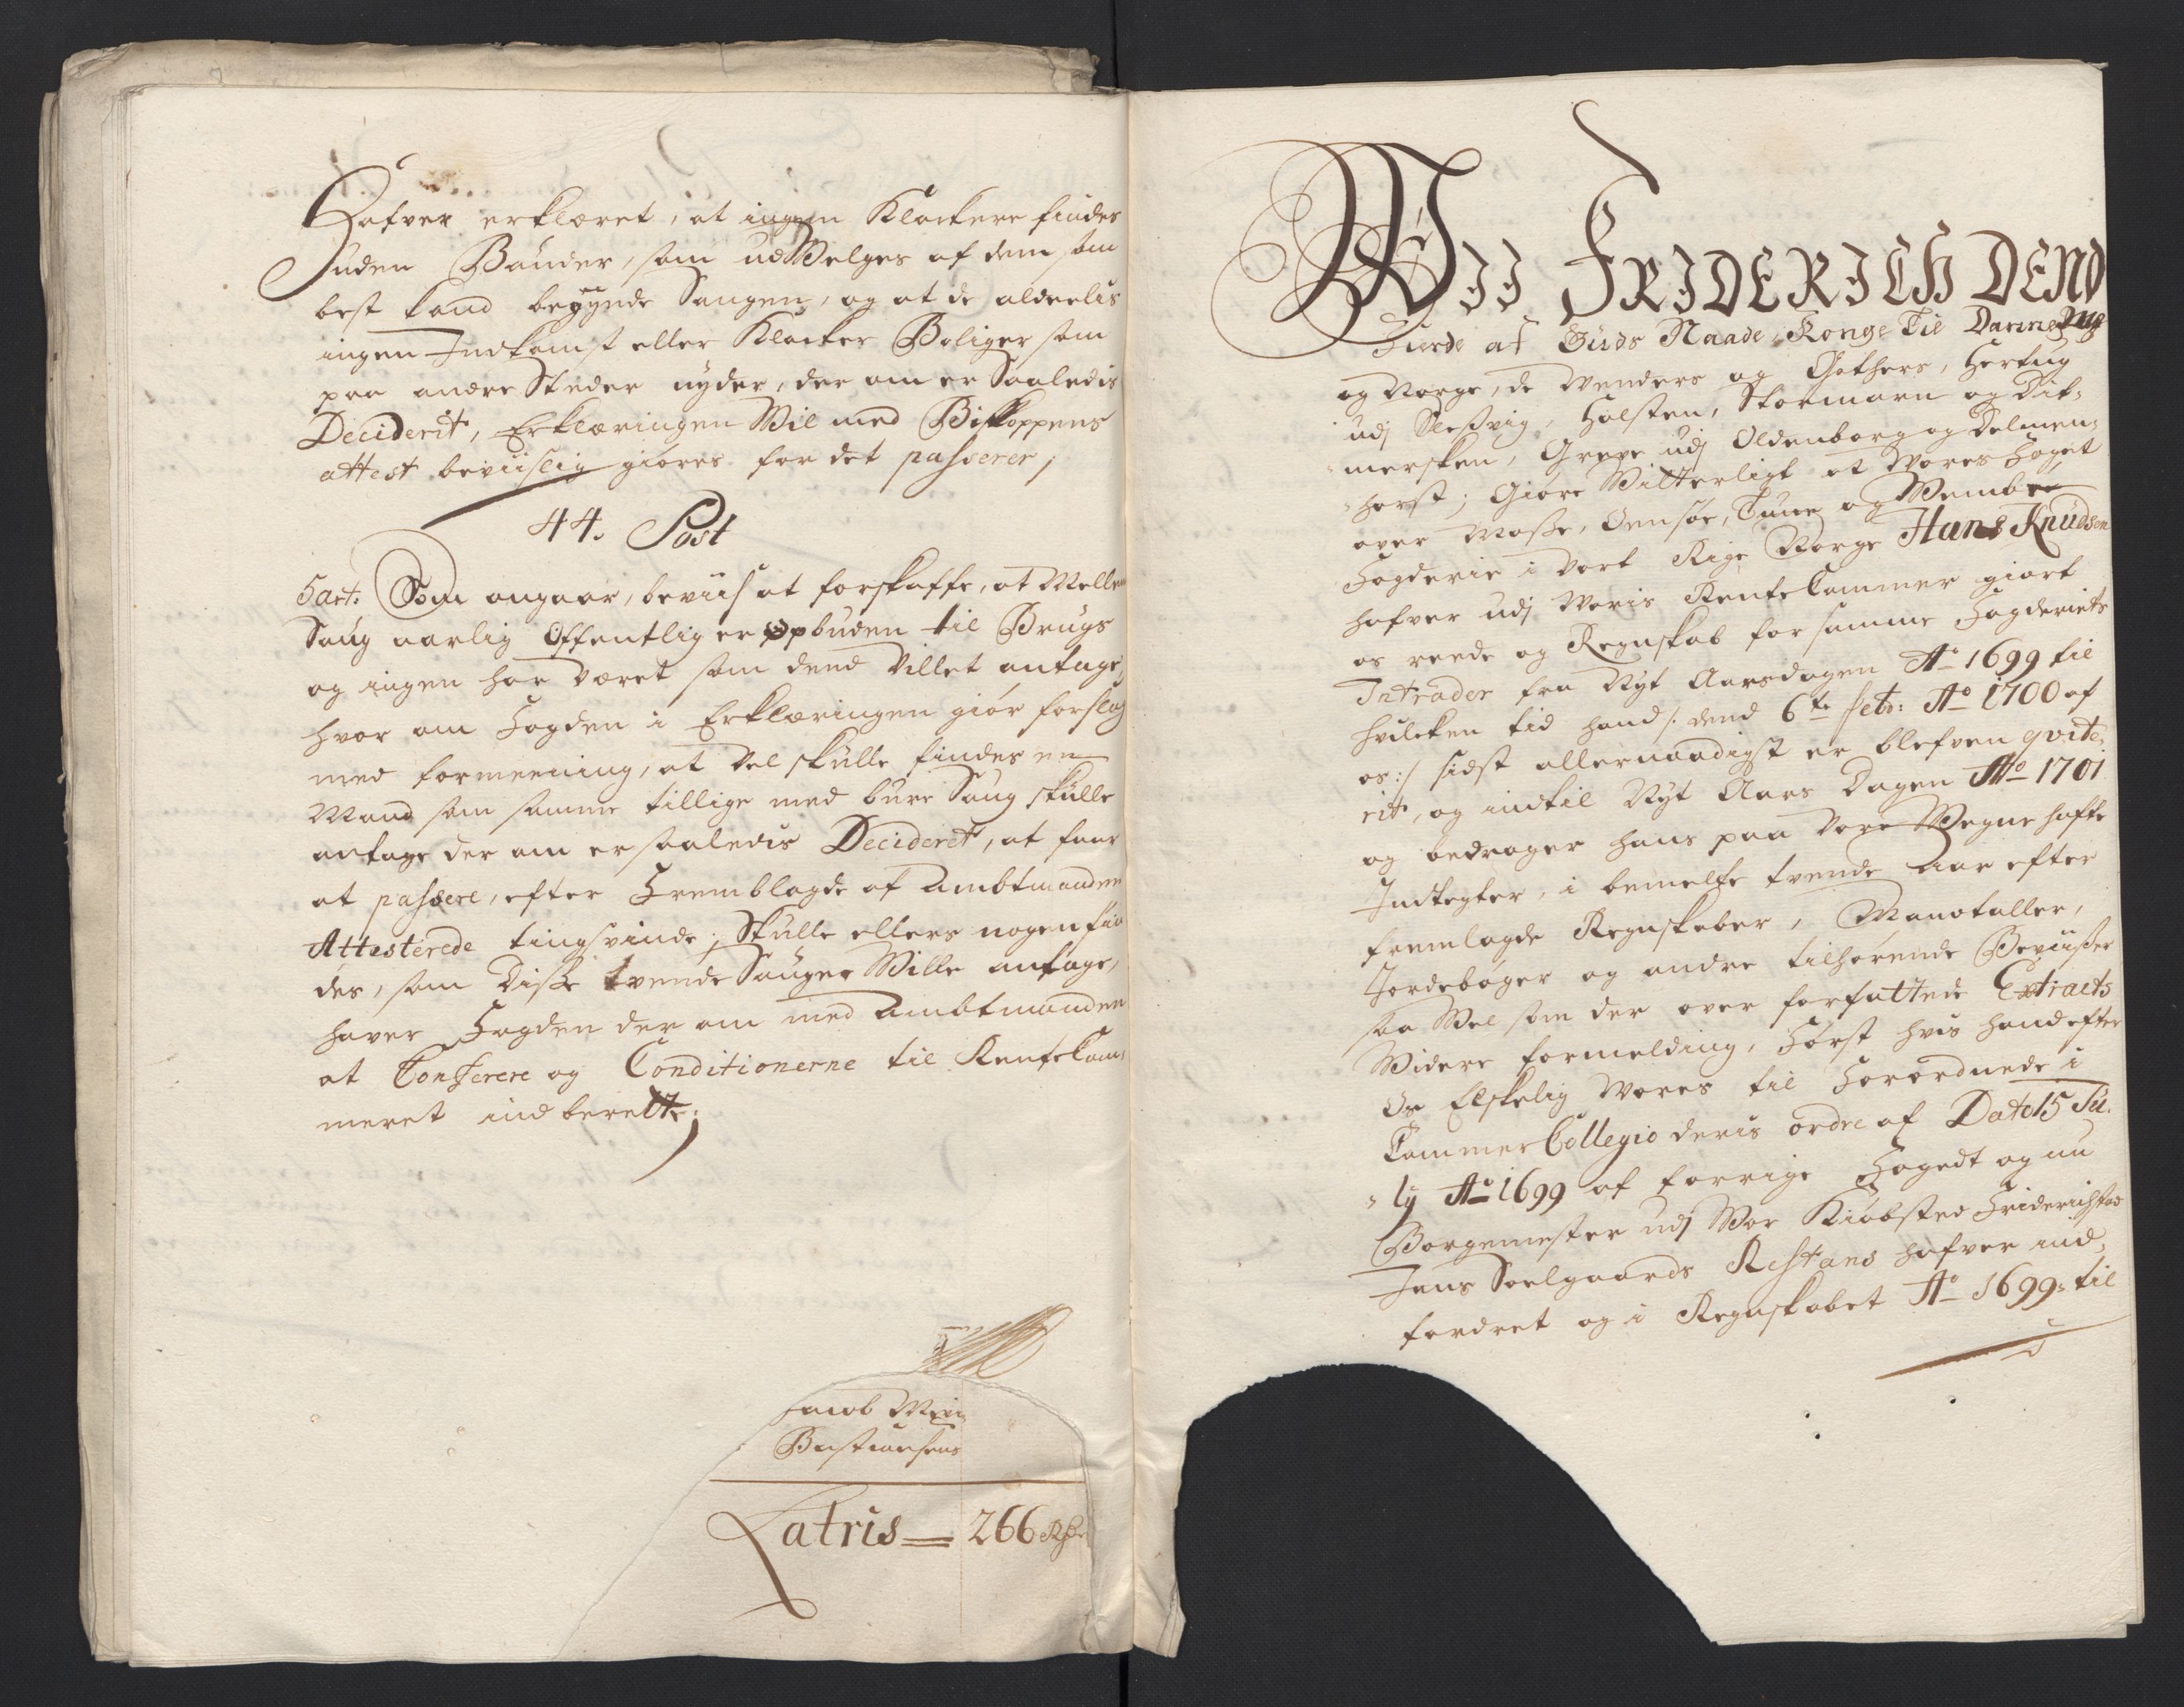 Hafver erklæret, at ingen Klockere findes
uden Bønder, som udVelges af dem som
best kand begynde Sangen, og at de aldeelis
ingen Indkomst eller Klocker Boliger som
paa andre Steder nyder, der om er Saaledis
Deciderit, Erklæringen Vil med Biskoppens
attest beviislig giøres for det passerer,
44. Post
5 art. Som angaar, beviis at forskaffe, at Melle
Saug aarlig Offentlig er opbuden til Brugs
og ingen har været som dend villet antage,
hvor om Fogden i Erklæringen giør forslag
med formeening, at vel skulle findes en
Mand som samme tillige med bure Saug skulle
antage der om er saaledis Decideret, at faar
at passere, efter Fremblagde af Ambtmanden
Attesterede tingsvinde, Skulle ellers nogen fin
des, som Disse tvende Sauger Wille antage,
haver Fogden der om med Ambtmanden
at Conferere og Conditionerne til Rentekam
meret ind berette;
Jacob
Bastiansens
Latris 266 Rdr
WII FRIDERICH DEND
Fierde af Guds Naade, Konge Til Danmarg
og Norge, de Wenders og Gothers, Hertug
udj Slesvig, Holsten, Stormarn og Dit-
mersken, Greve udj Oldenborg og Delmen-
horst; Giøre Witterligt at Wores Foget
over Mosse, Onsøe, Tune og Wembe
Fogderie i vort Rige Norge Hans Knüdsen
hafver udj Woris RenteCammer giort
os reede og Regnskab for samme Fogderiets
Intrader fra Nyt Aarsdagen Ao 1699 til
hvilcken tid hand /: dend 6te febr: Ao 1700 af
os :/ sidst allernaadigst er blefven qvite-
rit, og indtil Nyt Aars Dagen Ao 1701
og bedrager hans paa Vore Wegne hafte
Indtegter, i bemelte tvende Aar efter
fremlagde Regnskaber, Mandtaller,
Jordebøger og andre tilhørende Beviiser
saa Wel som der over forfattede Extracts
Widere formelding, Først hvis hand efter
Os Elskelig Wores til Forordnede i
Cammer Collegio deris ordre af Dato 15 Ju-
ly Ao 1699 af forrige Fogedt og nu
Borgemester udj Wor Kiøbsted Friderichstad
Jens Soelgaards Restans hafver ind-
fordret og i Regnskabet Ao 1699 til